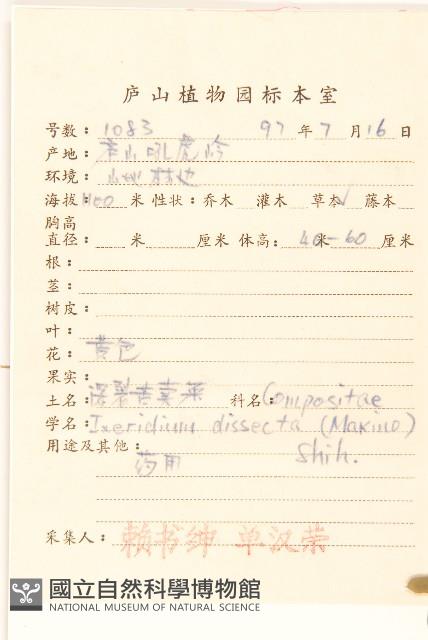 庐山植物园标本室
号数：1083 97年7月16日
产地：庐山吼虎岭
环境：山地林边
海拔：1100 米 性状：乔木 灌木 草本√ 藤本
胸高
直径： 米 厘米 体高： 米 40-60 厘米
根：
茎：
树皮：
叶：
花：黄色
果实：
土名：深裂苦荬菜 科名：Compositae
学名：Ixeridium dissecta (Makino)
Shih.
用途及其他：
药用
采集人：赖书绅 单汉荣
國立自然科學博物館
NATIONAL MUSEUM OF NATURAL SCIENCE